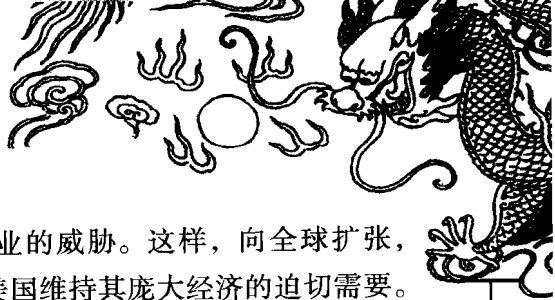 业的威胁。这样，向全球扩张，
国维持其庞大经济的迫切需要。